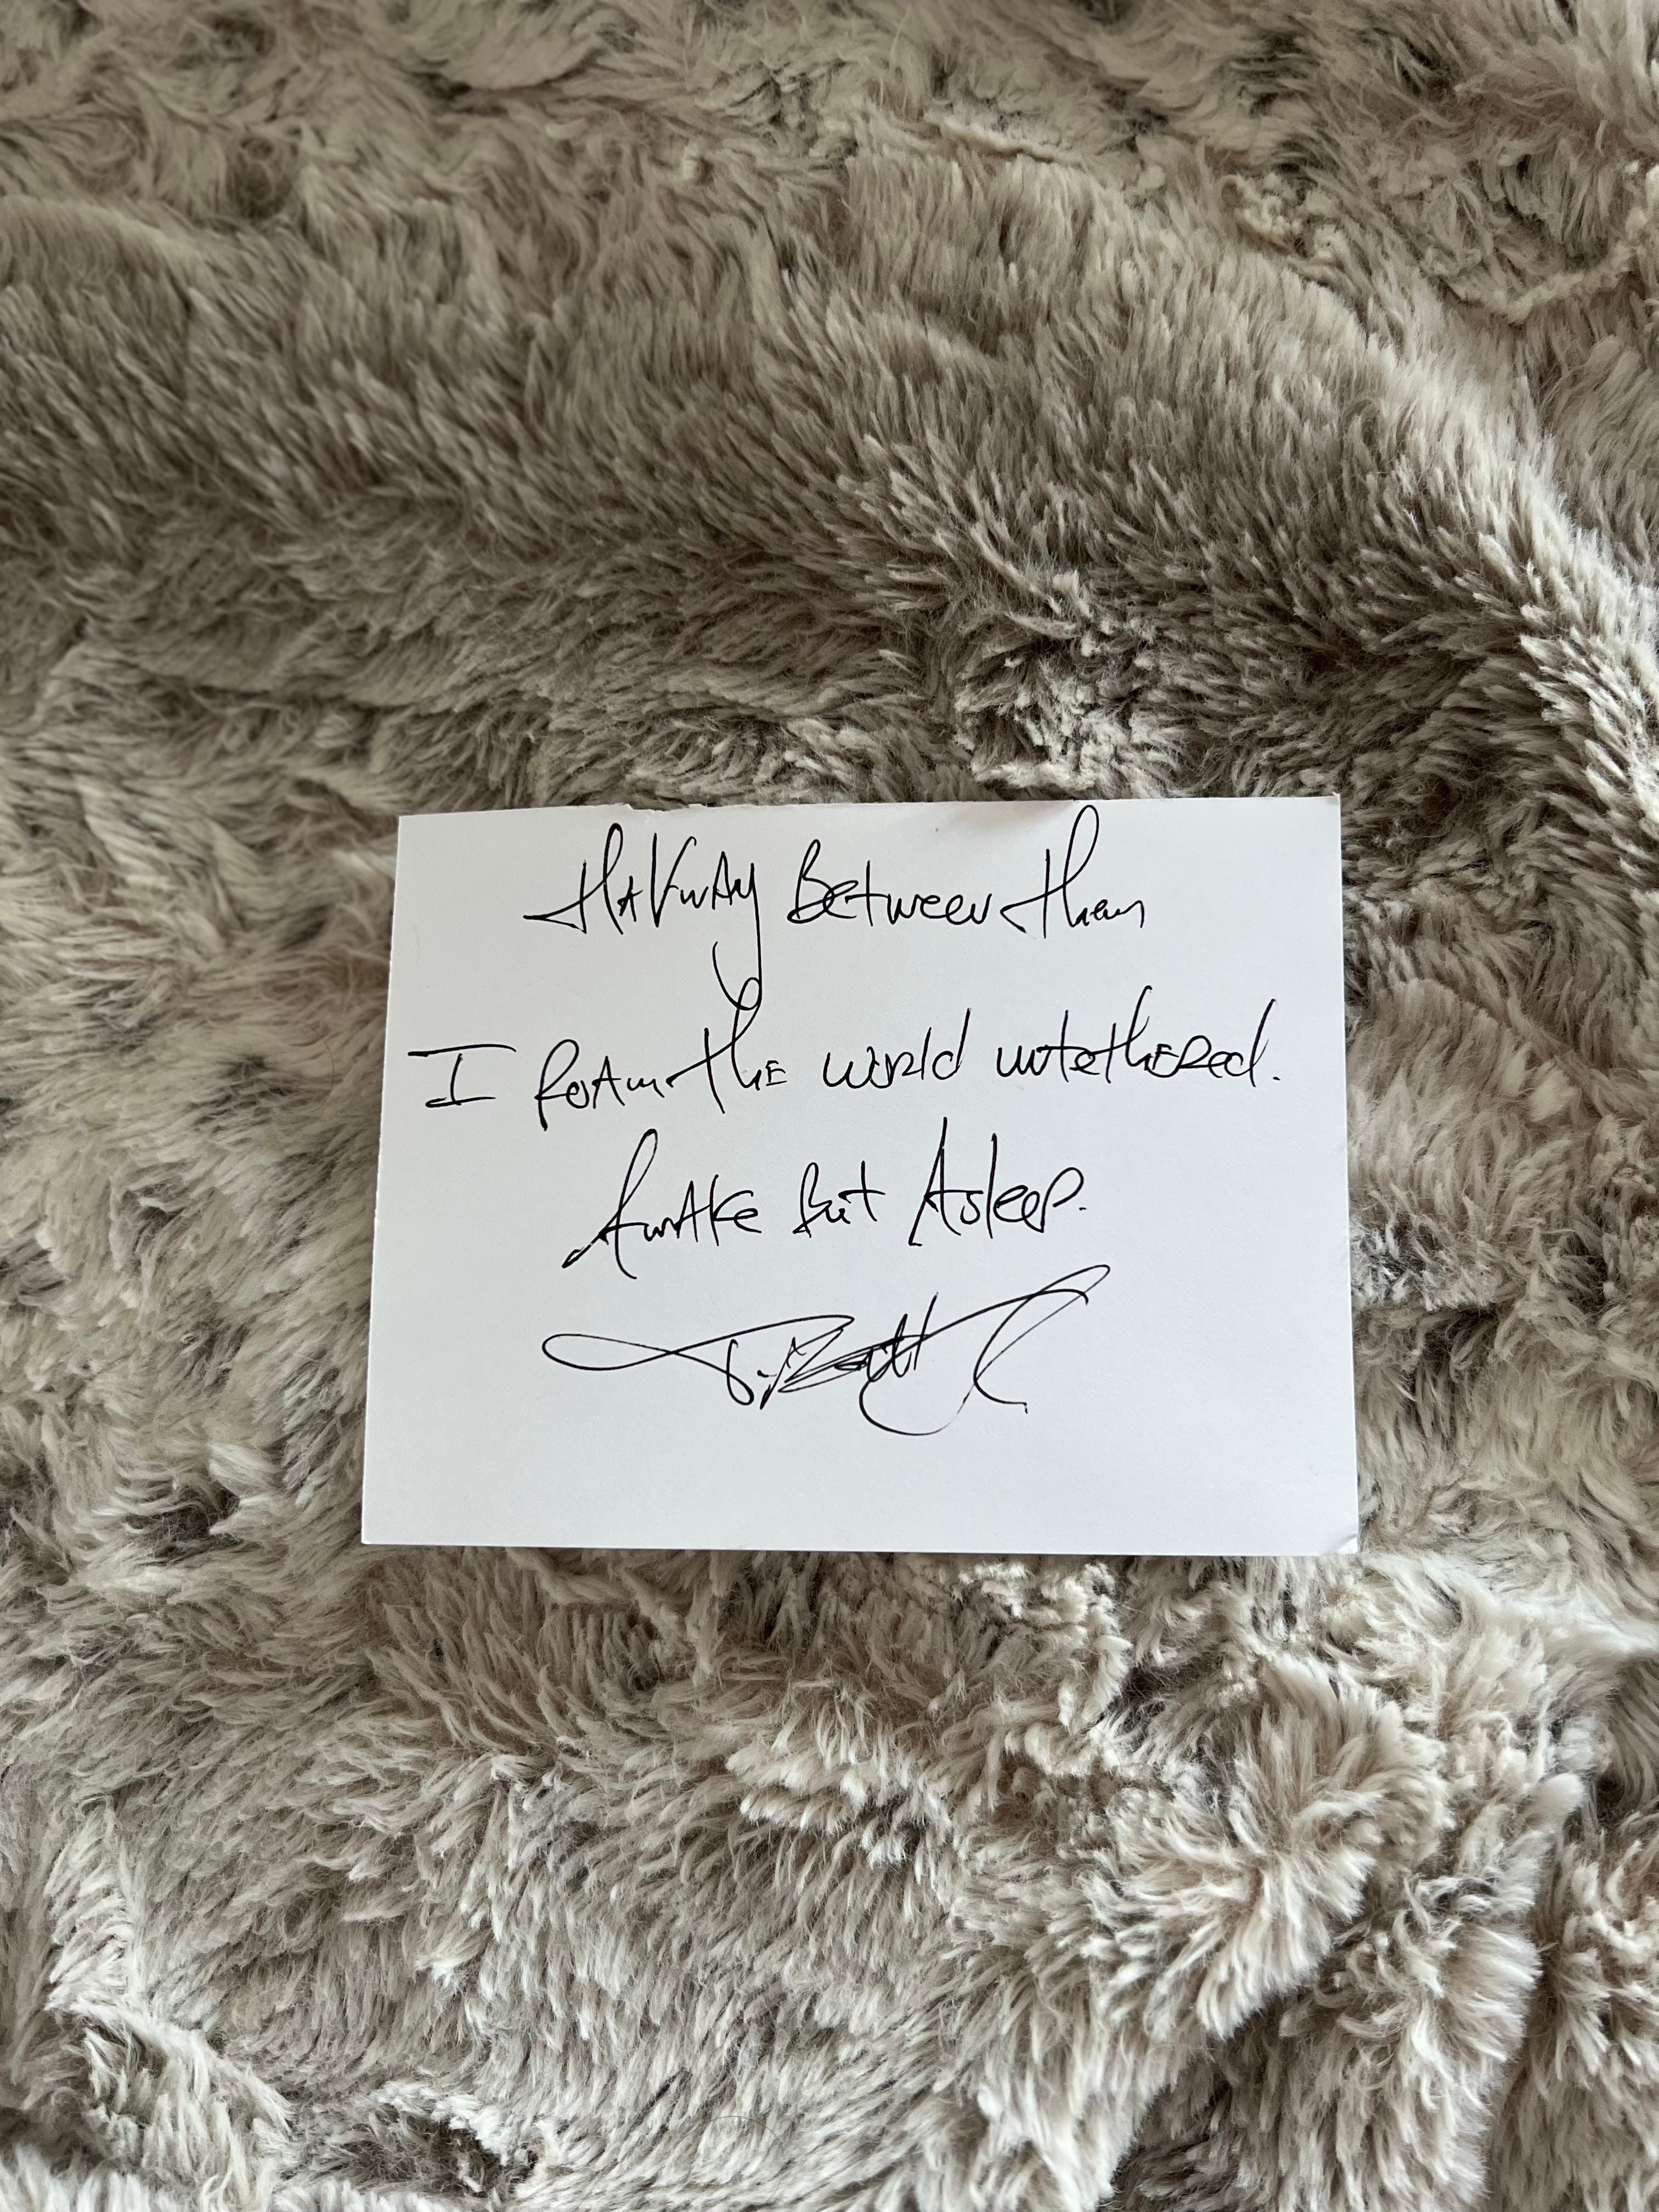 Halfway Between them
I Roam the world untethered.
Awake But Asleep.